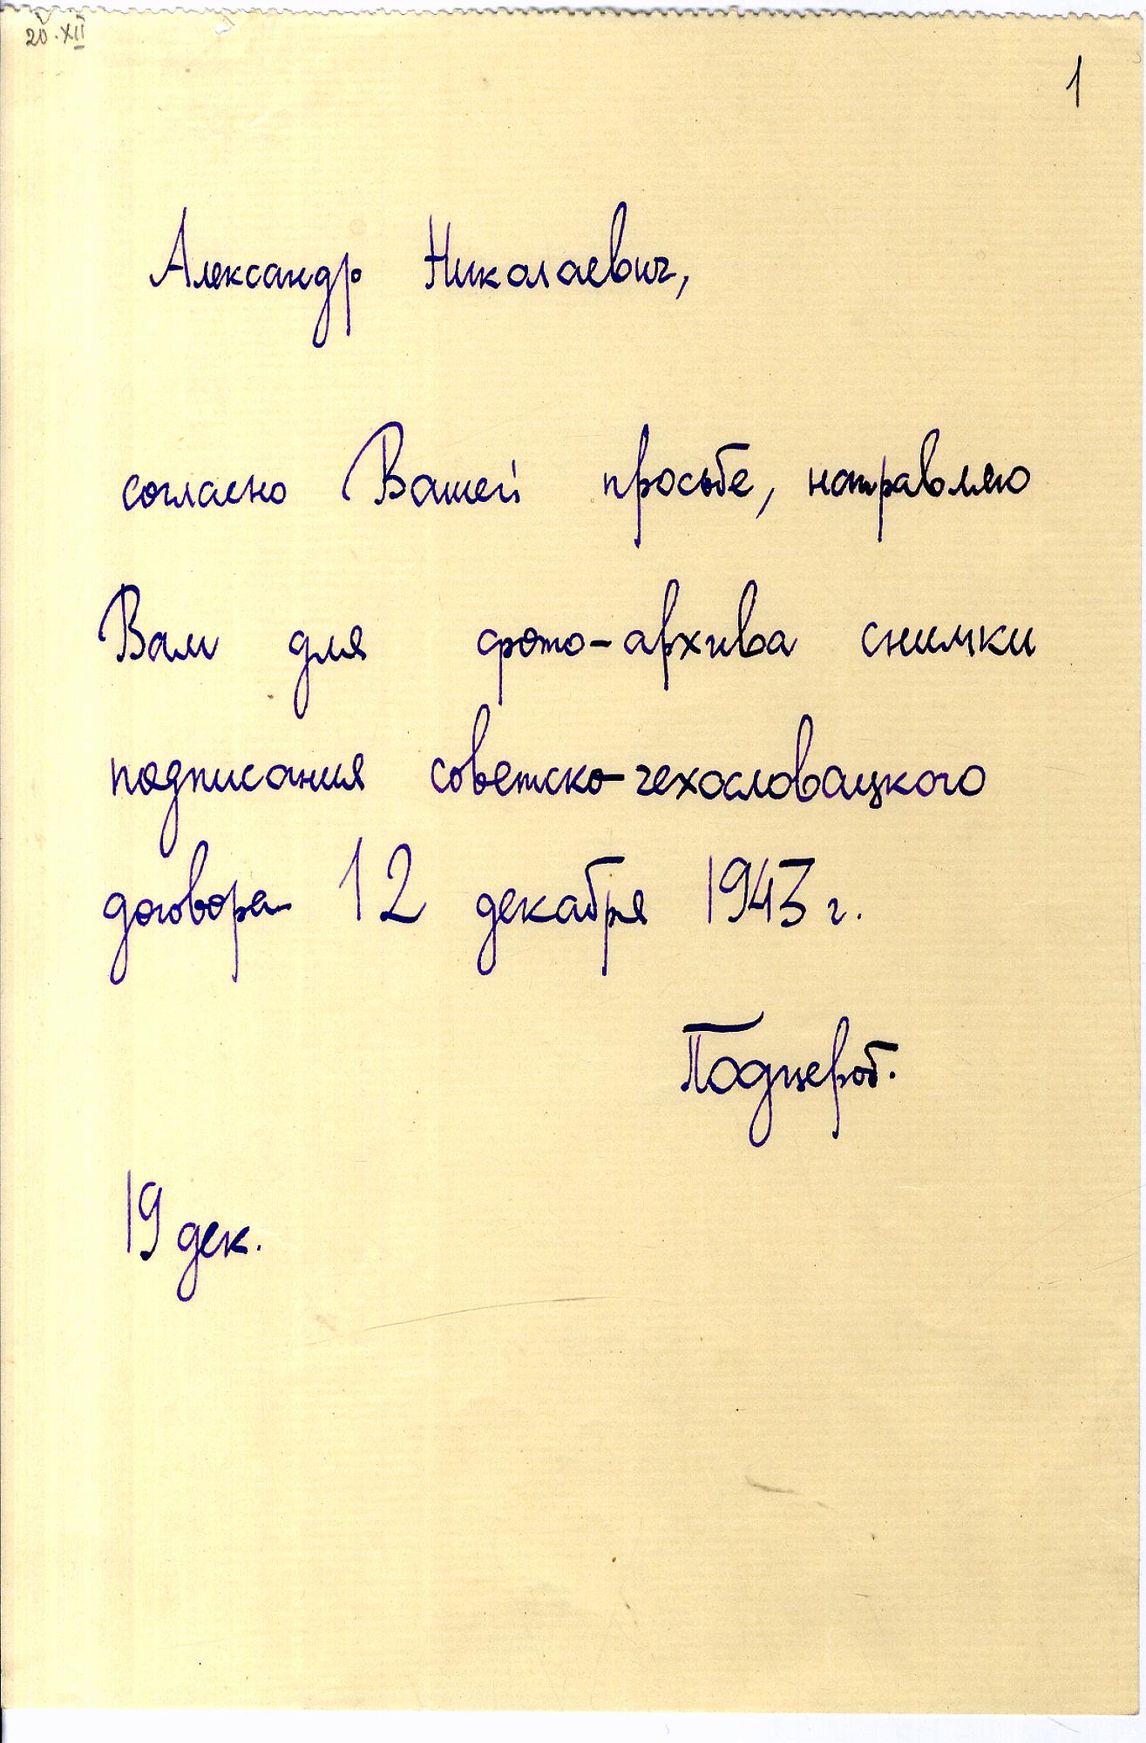 20.XII
1
Александр Николаевич,
согласно Вашей просьбе, направляю
Вам для фото-архива снимки
подписания советско-чехословацкого
договора 12 декабря 1943 г.
Подцероб.
19 дек.